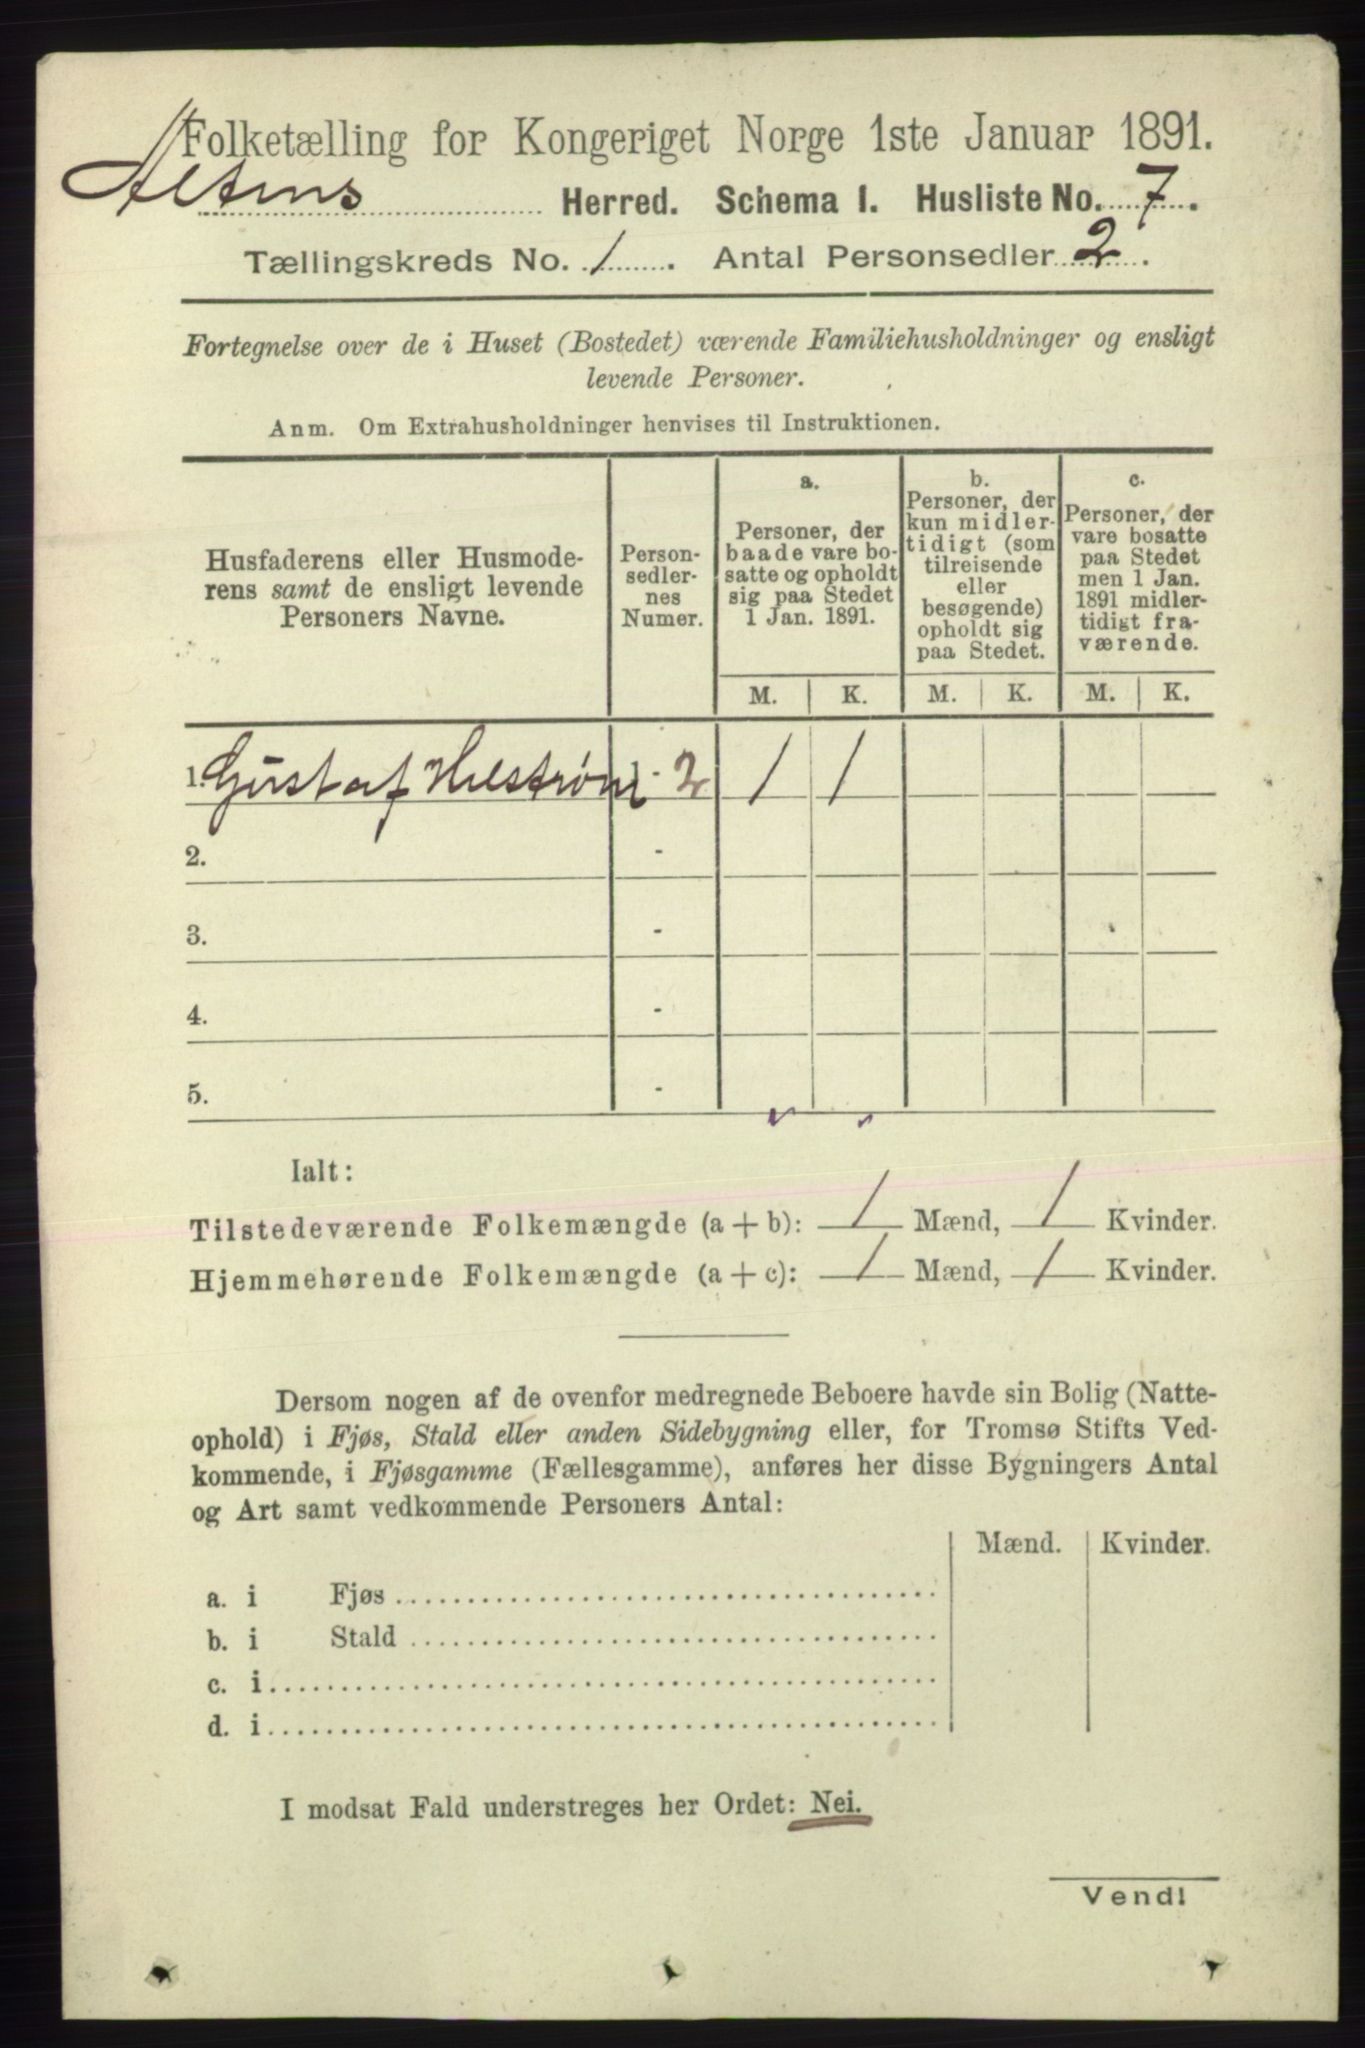 Folketælling for Kongeriget Norge 1ste Januar 1891.
Altens Herred. Schema 1. Husliste No. 7.
Tællingskreds No. 1. Antal Personsedler 2.
Fortegnelse over de i Huset (Bostedet) værende Familiehusholdninger og ensligt
levende Personer.
Anm. Om Extrahusholdninger henvises til Instruktionen.
Husfaderens eller Husmode-
rens samt de ensligt levende
Personers Navne.
Person-
sedler-
nes
Numer.
a.
Personer, der
baade vare bo-
satte og opholdt
sig paa Stedet
1 Jan. 1891.
b.
Personer, der
kun midler-
tidigt (som
tilreisende
eller
besøgende)
opholdt sig
paa Stedet.
c.
Personer, der
vare bosatte
paa Stedet
men 1 Jan.
1891 midler-
tidigt fra-
værende.
M. K. M. K. M. K.
1. Gustaf 1 - 2 1 1
2. -
3. -
4. -
5. -
Ialt:
Tilstedeværende Folkemængde (a + b): 1 Mænd, 1 Kvinder.
Hjemmehørende Folkemængde (a + c): 1 Mænd, 1 Kvinder.
Dersom nogen af de ovenfor medregnede Beboere havde sin Bolig (Natte-
ophold) i Fjøs, Stald eller anden Sidebygning eller, for Tromsø Stifts Ved-
kommende, i Fjøsgamme (Fællesgamme), anføres her disse Bygningers Antal
og Art samt vedkommende Personers Antal:
Mænd. Kvinder.
a. i Fjøs
b. i Stald
c. i
d. i
I modsat Fald understreges her Ordet: Nei.
Vend!